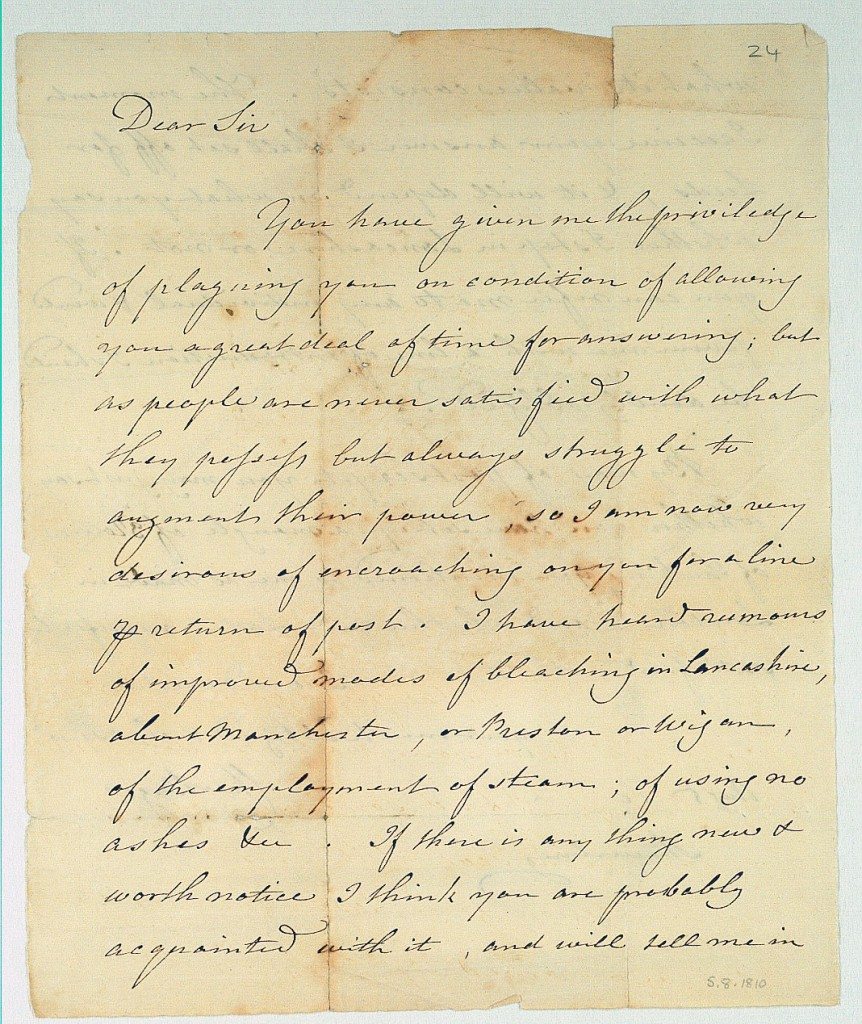 24
Dear Sir
You have given me the priviledge
of plaguing you on condition of allowing
you a great deal of time for answering; but
as people are never satisfied with what
they possess but always struggle to
augment their power, so I am now very
desirous of encroaching on you for a line
return of post. I have heard rumours
of improved modes of bleaching in Lancashire,
about Manchester, or Preston or Wigan,
of the employment of steam; of using no
ashes &c. If there is any thing new &
worth notice I think you are probably
acquainted with it, and will tell me in
5.8.1810